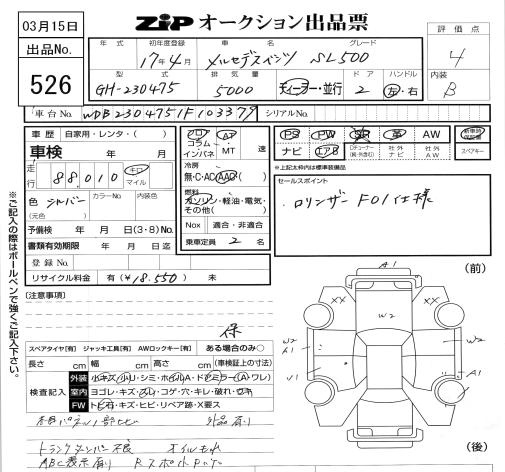 03月15日
ZiP オークション出品票
出品No.
526
年式 初年度登録 車名 グレード
17年4月 メルセデスベンツ SL500
型式 排気量 ドア ハンドル
GH-230475 5000 ディーラー・並行 2 左・右
評価点
4
内装
B
車台No. WDB2304751F103379 シリアルNo.
車歴 自家用・レンタ・( )
車検 年 月
走行 88,010 キロ マイル
色 シルバー (元色) カラーNo. 内装色
予備検 年 月 日(3・8)No.
書類有効期限 年 月 日迄
登録No.
リサイクル料金 有(¥18,550) 未
フロア コラム インパネ AT MT 速
冷房
無・C・AC(AAC)
燃料
ガソリン・軽油・電気・その他( )
Nox 適合・非適合
乗車定員 2 名
PS PW SR 革 AW
ナビ エアB Dチューナー 社外ナビ 社外AW
新車時保証書
スペアキー
*上記太枠内は標準装備品
セールスポイント
・ロリンザーF01仕様
※ご記入の際はボールペンで強くご記入下さい。
[注意事項]
保
スペアタイヤ[有] ジャッキ工具[有] AWロックキー[有] ある場合のみ○
長さ cm 幅 cm 高さ cm (車検証上の寸法)
検査記入
外装 小キズ・小U・シミ・ホイルA・ドアミラー(A・ワレ)
室内 ヨゴレ・キズ・スレ・コゲ・穴・キレ・破れ・ロキ
FW トビ石・キズ・ヒビ・リペア跡・X要ス
トランクダンパー不良 オイルモレ
ABC表示有り Rスポイラー
(前)
(後)
A1
XX
XX
W2
W2
A1
W2
A1
A1